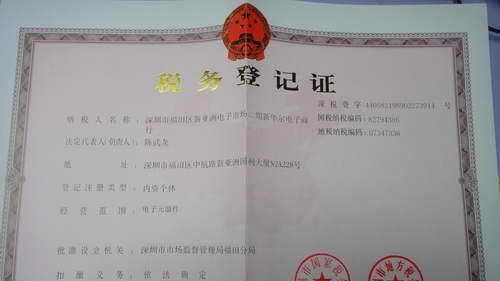 税务登记证
深税登字440882198902223914 号
国税纳税编码：82794386
地税纳税编码：07347336
纳税人名称：深圳市福田区新亚洲电子市场二期新华尔电子商行
法定代表人(负责人)：陈武龙
地址：深圳市福田区中航路新亚洲国利大厦N2A228号
登记注册类型：内资个体
经营范围：电子元器件
批准设立机关：深圳市市场监督管理局福田分局
扣缴义务：依法确定